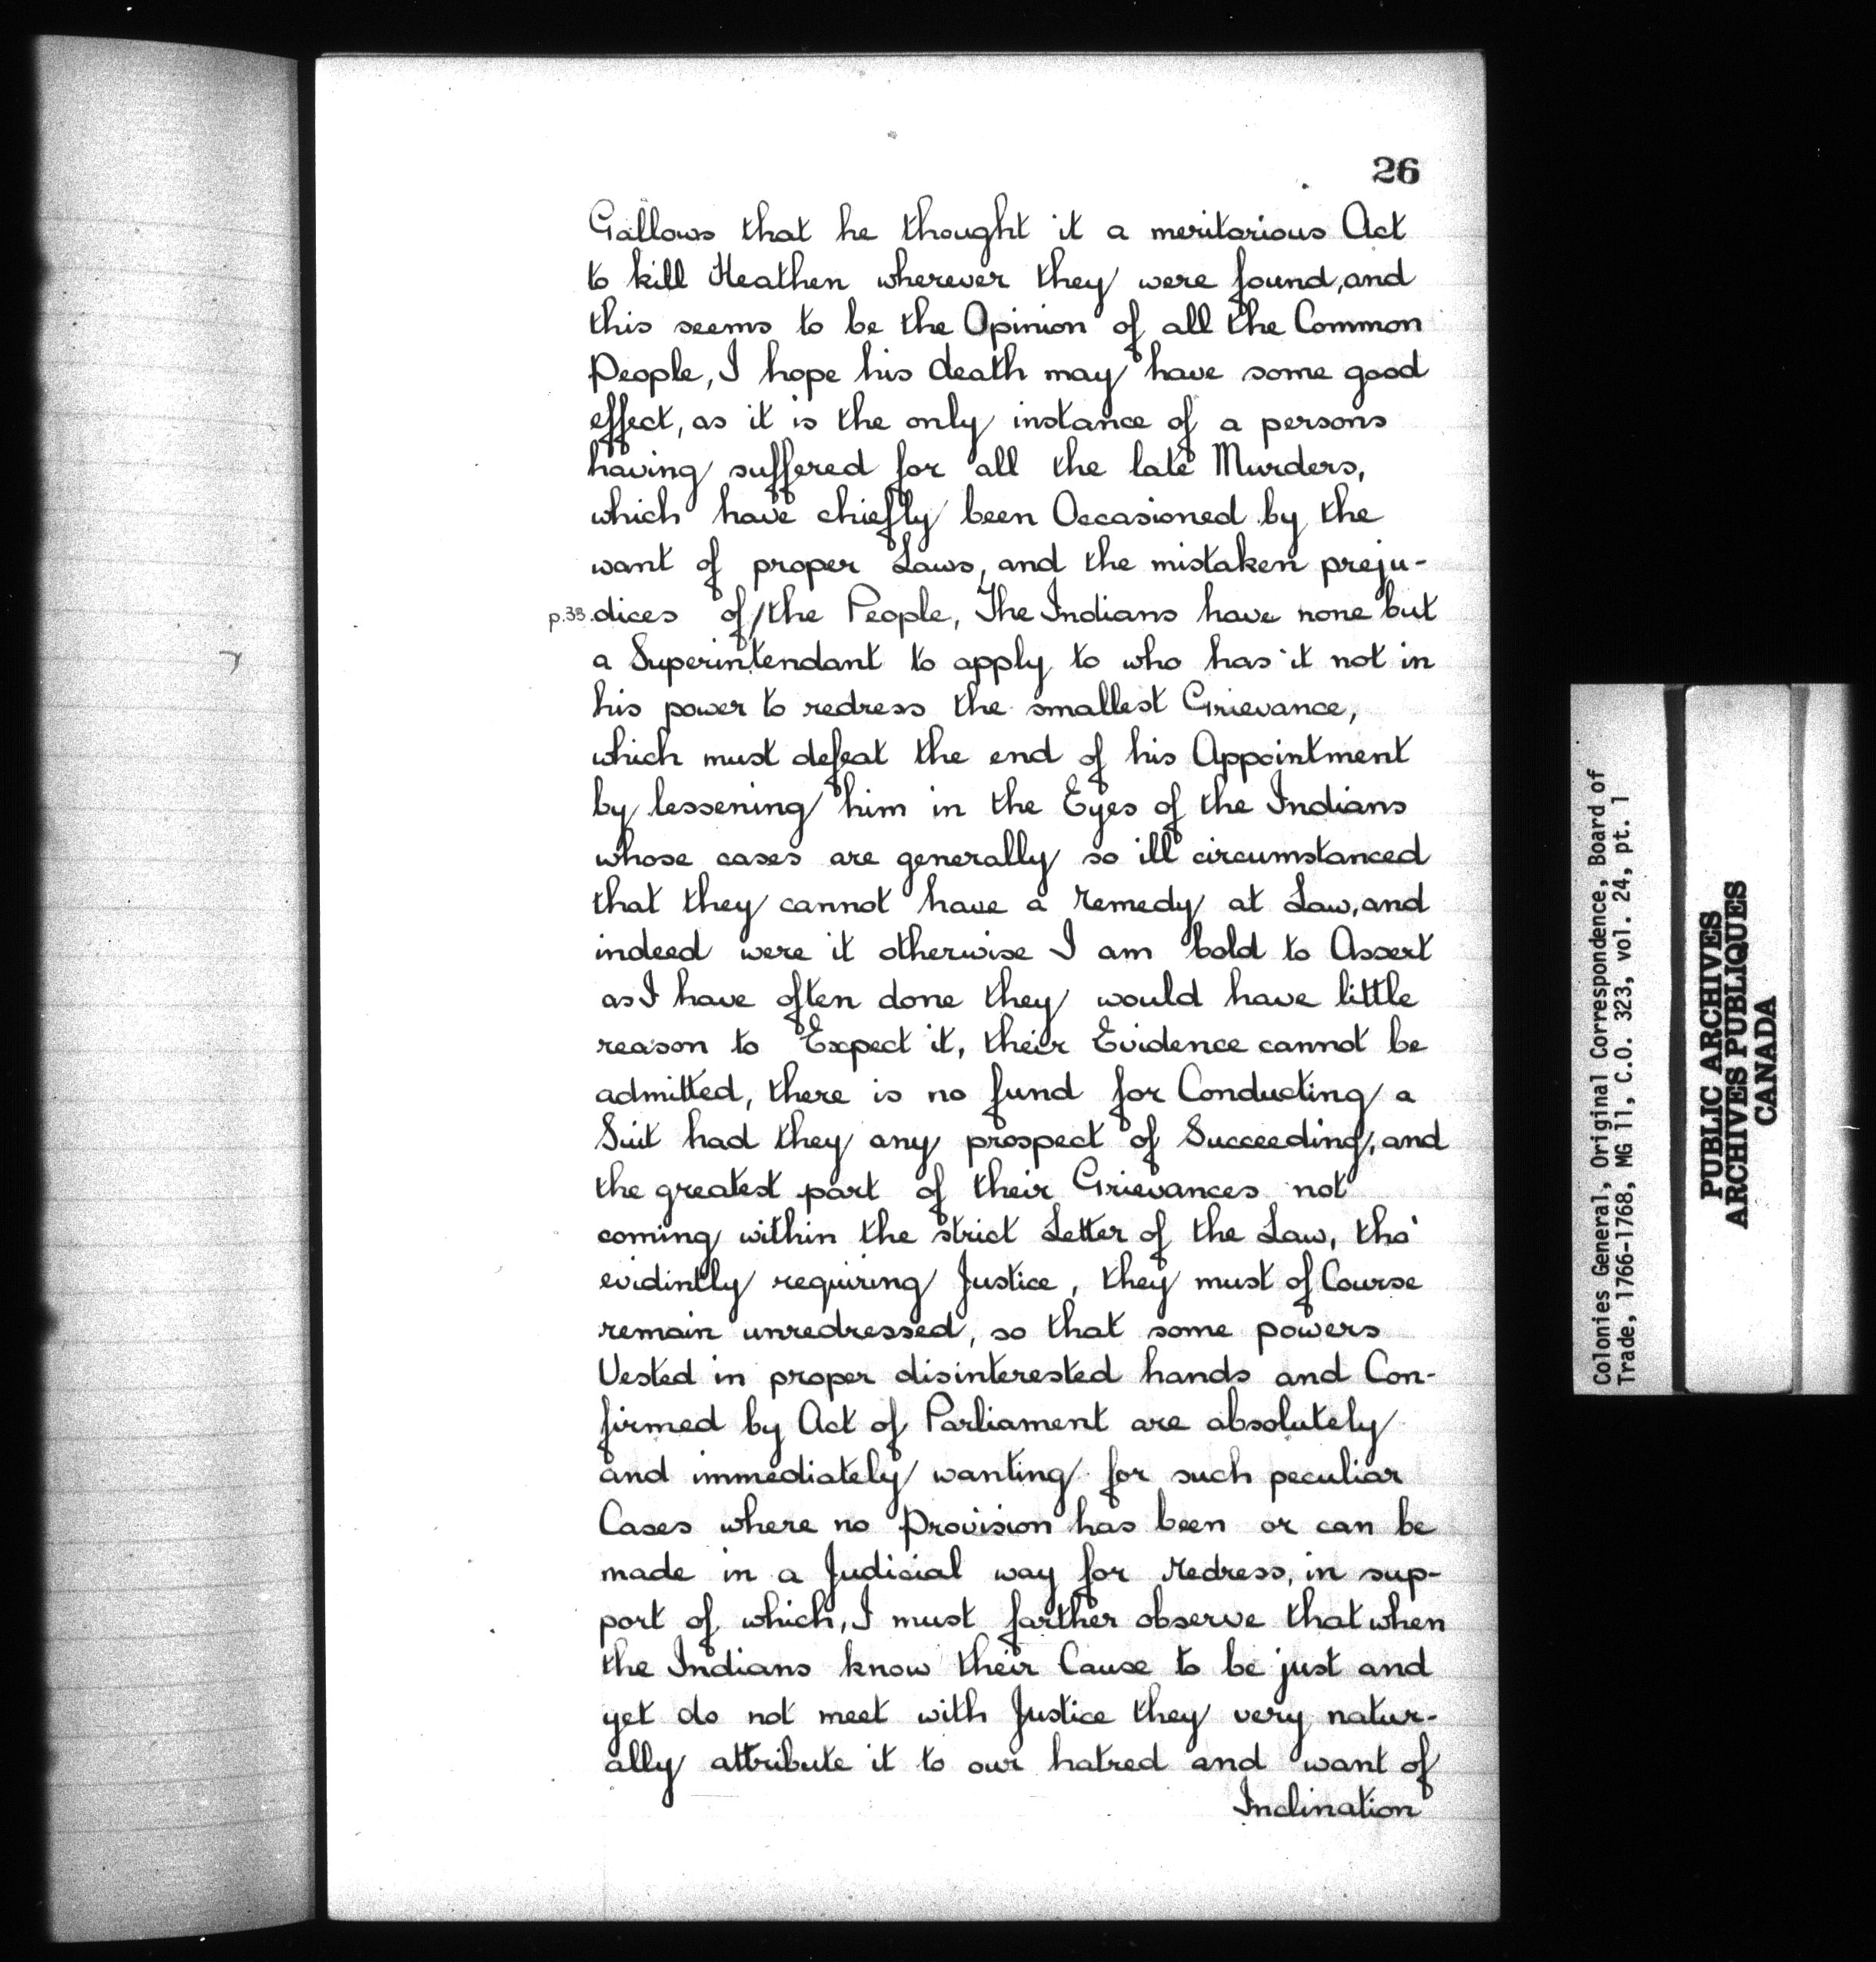 26
Gallows that he thought it a meritorious Act
to kill Heathen wherever they were found, and
this seems to be the Opinion of all the Common
People, I hope his death may have some good
effect, as it is the only instance of a persons
having suffered for all the late Murders,
which have chiefly been Occasioned by the
want of proper Laws, and the mistaken preju-
p.33. dices of/the People, The Indians have none but
a Superintendant to apply to who has it not in
his power to redress the smallest Grievance,
which must defeat the end of his Appointment
by lessening him in the Eyes of the Indians
whose cases are generally so ill circumstanced
that they cannot have a remedy at Law, and
indeed were it otherwise I am bold to Assert
as I have often done they would have little
reason to Expect it, their Evidence cannot be
admitted, there is no fund for Conducting a
Suit had they any prospect of Succeeding, and
the greatest part of their Grievances not
coming within the strict Letter of the Law, tho'
evidintly requiring Justice, they must of Course
remain unredressed, so that some powers
Vested in proper disinterested hands and Con-
firmed by Act of Parliament are absolutely
and immediately wanting for such peculiar
Cases where no Provision has been or can be
made in a Judicial way for redress, in sup-
port of which, I must farther observe that when
the Indians know their Cause to be just and
yet do not meet with Justice they very natur-
ally attribute it to our hatred and want of
Inclination
Colonies General, Original Correspondence, Board of
Trade, 1766-1768, MG 11, C.O. 323, vol. 24, pt. 1
PUBLIC ARCHIVES
ARCHIVES PUBLIQUES
CANADA